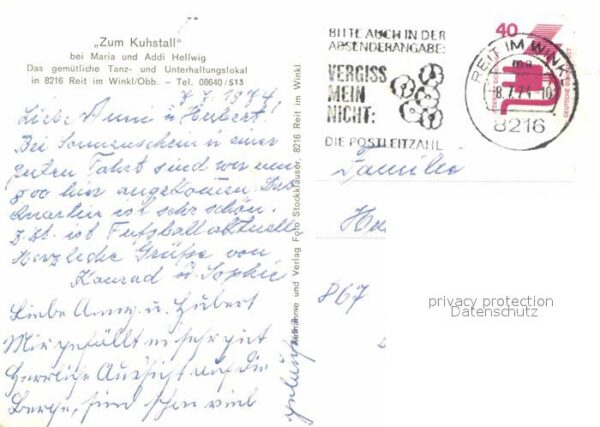 „Zum Kuhstall"
bei Maria und Addi Hellwig
Das gemütliche Tanz- und Unterhaltungslokal
in 8216 Reit im Winkl/Obb. – Tel. 08640/513
7.7.1974
Liebe Anni u. Herbert!
Bei Sonnenschein u. einer
guten Fahrt sind wir um
hier angekommen. Das
Quartier ist sehr schön.
Z.Zt. ist Fußball aktuell
Herzliche Grüße von
Konrad u. Sophie
Liebe Anny u. Hubert
Mir gefällt es sehr gut
Herrliche Aussicht auf die
Berge, sind schon viel
gelaufen
Aufnahme und Verlag Foto Stockklauser, 8216 Reit im Winkl
BITTE AUCH IN DER
ABSENDERANGABE:
VERGISS
MEIN
NICHT:
DIE POSTLEITZAHL
REIT IM WINKL
ma
8.7.74-10
8216
40
DEUTSCHE BUNDESPOST
Familie
867
privacy protection
Datenschutz